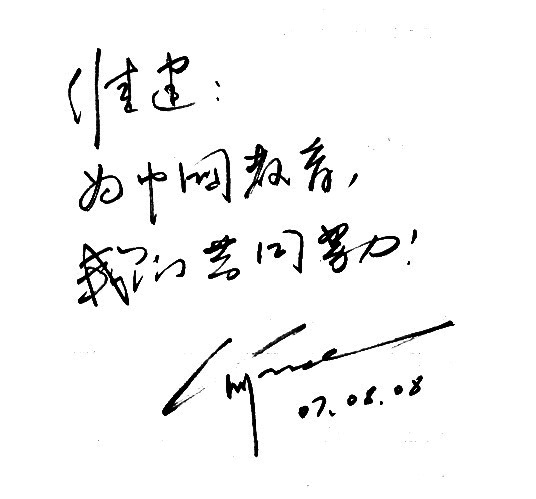 建:
为中国教育,
我们共同努力!
07.08.08